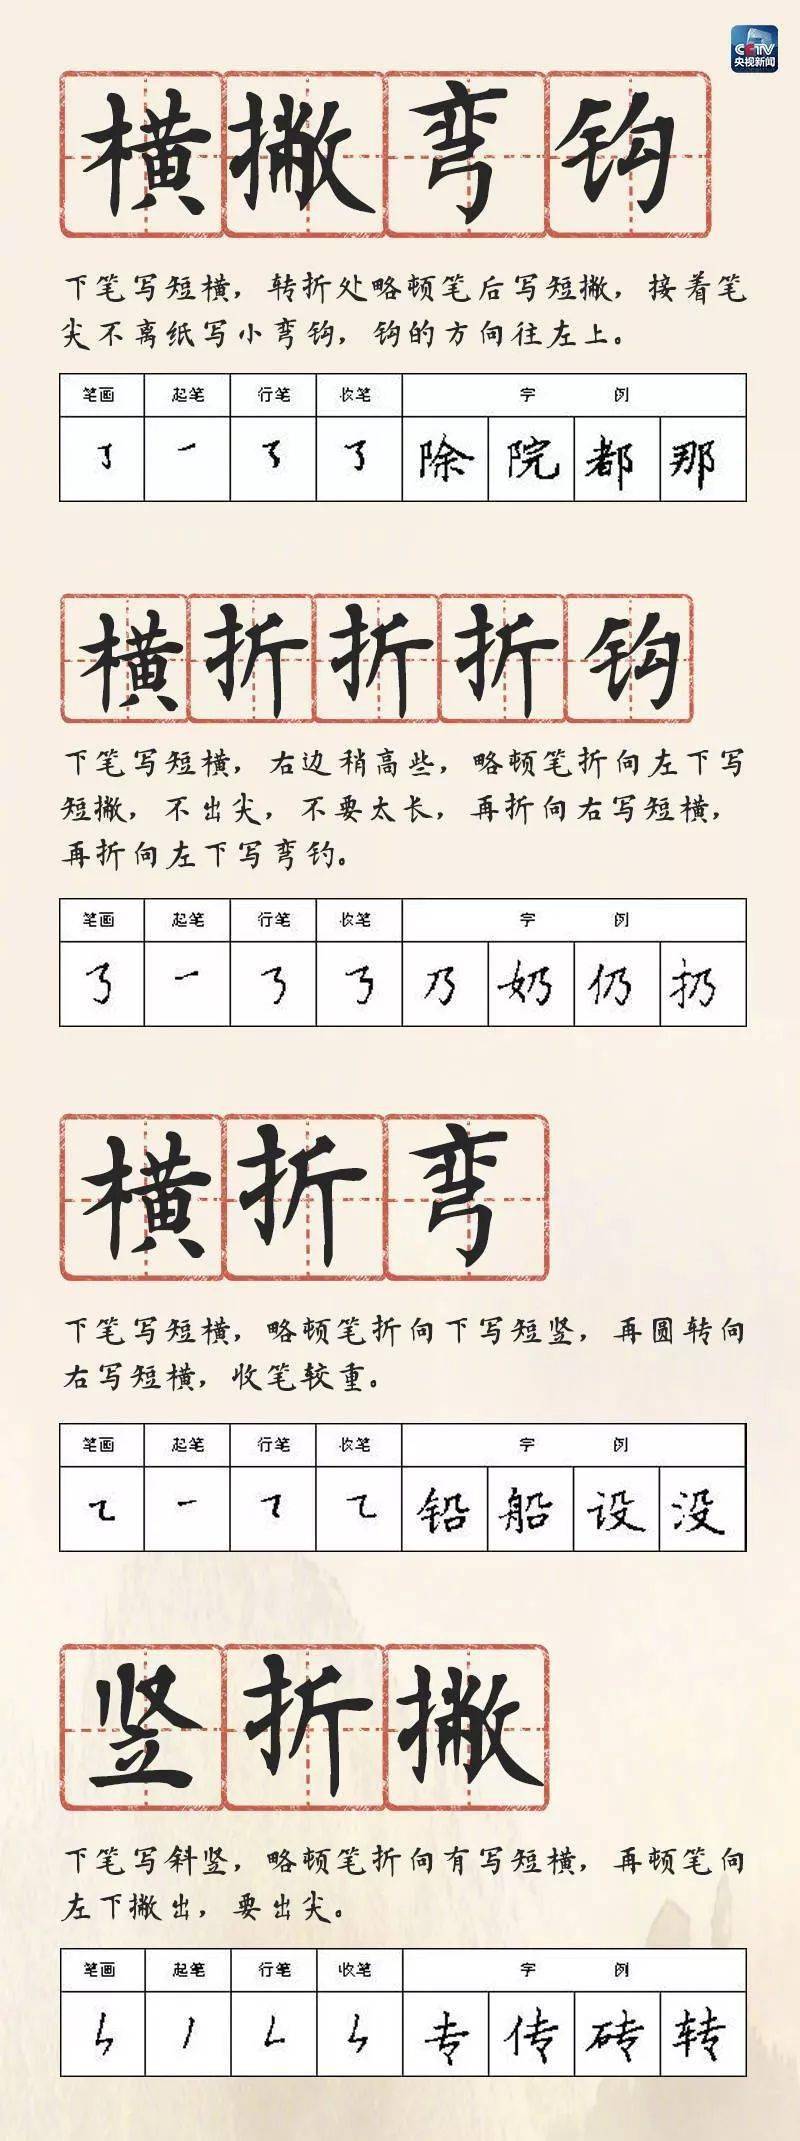 CCTV
央视新闻
横撇弯钩
下笔写短横，转折处略顿笔后写短撇，接着笔
尖不离纸写小弯钩，钩的方向往左上。
笔画 起笔 行笔 收笔 字例
除 院 都 那
横折折折钩
下笔写短横，右边稍高些，略顿笔折向左下写
短撇，不出尖，不要太长，再折向右写短横，
再折向左下写弯钓。
笔画 起笔 行笔 收笔 字例
乃 奶 仍 扔
横折弯
下笔写短横，略顿笔折向下写短竖，再圆转向
右写短横，收笔较重。
笔画 起笔 行笔 收笔 字例
铅 船 设 没
竖折撇
下笔写斜竖，略顿笔折向有写短横，再顿笔向
左下撇出，要出尖。
笔画 起笔 行笔 收笔 字例
专 传 砖 转